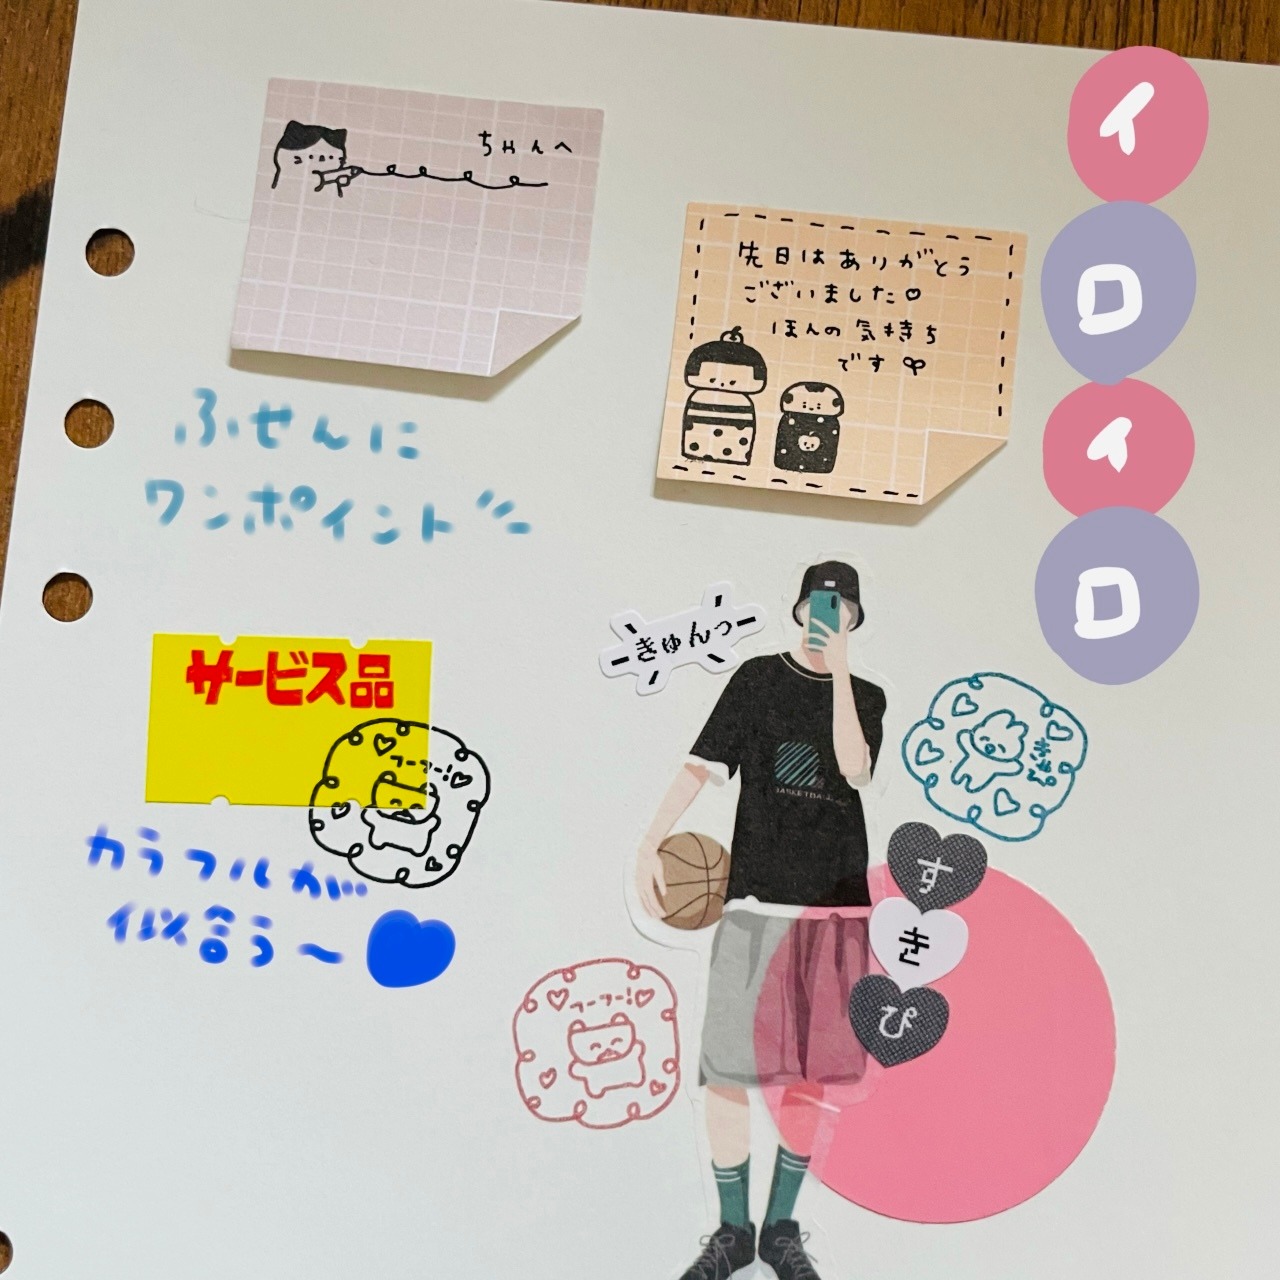 ちゃんへ
先日はありがとう
ございました♡
ほんの気持ち
です
イロイロ
ふせんに
ワンポイント
きゅんっ
サービス品
フーフー!
カラフルが
似合う〜
すきぴ
フーフー!